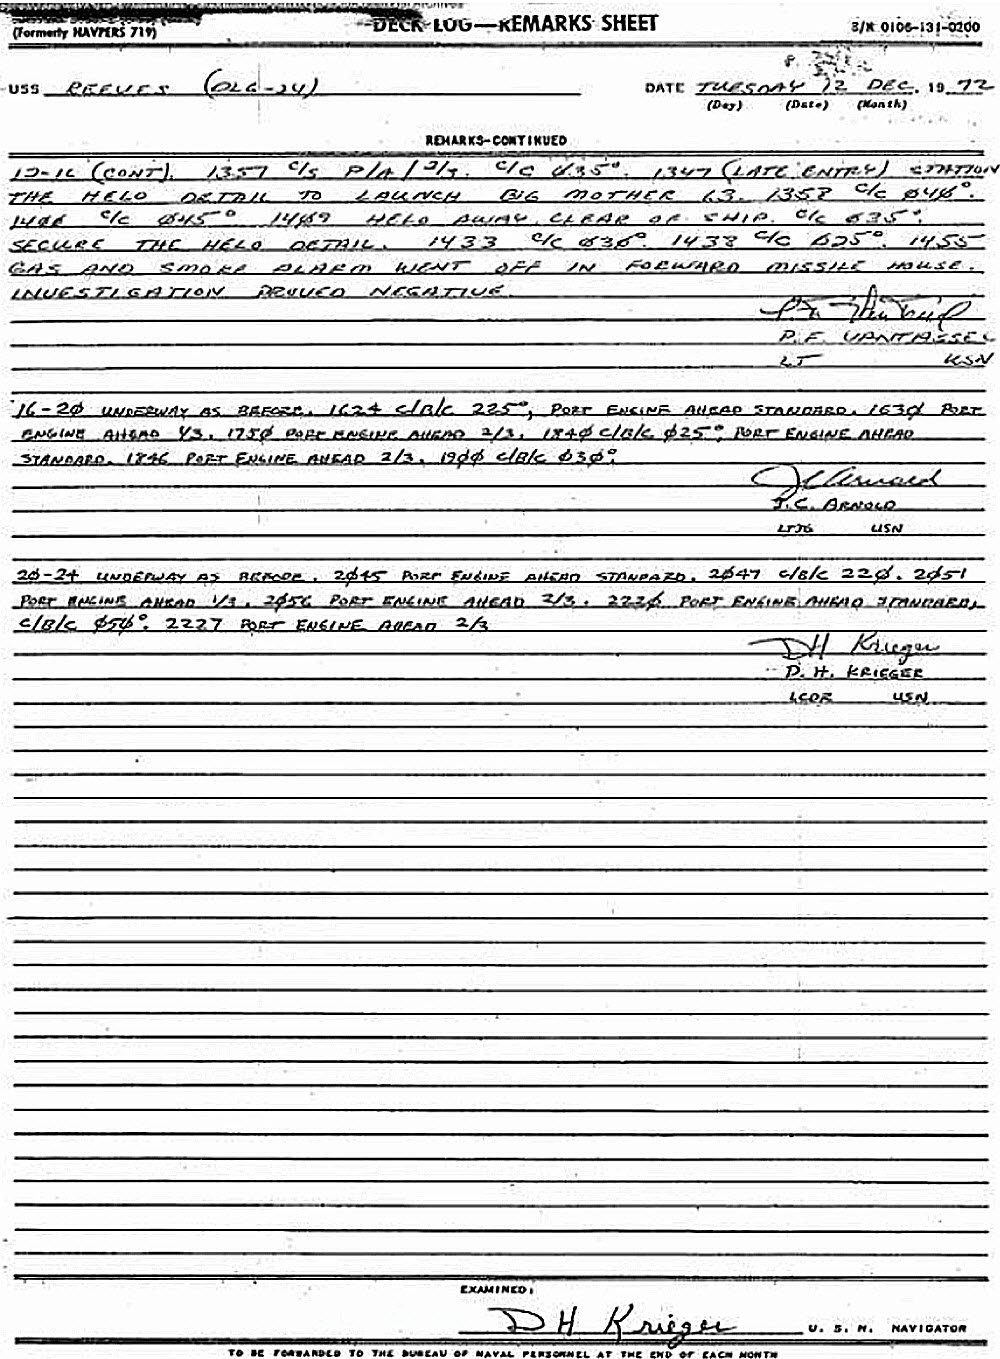 (Formerly NAVPERS 719)
DECK LOG—REMARKS SHEET
S/N 0106-131-0200
USS REEVES (DLG-24)
DATE TUESDAY 12 DEC. 19 72
(Day) (Date) (Month)
REMARKS—CONTINUED
12-16 (CONT). 1357 C/S P/A/ 2/3. C/C Ø35°. 1347 (LATE ENTRY) STATION
THE HELO DETAIL TO LAUNCH BIG MOTHER 63. 1358 C/C Ø40°.
1406 C/C Ø45° 1409 HELO AWAY, CLEAR OF SHIP. C/C Ø35°.
SECURE THE HELO DETAIL. 1433 C/C Ø30°. 1438 C/C Ø25°. 1455
GAS AND SMOKE ALARM WENT OFF IN FORWARD MISSILE HOUSE.
INVESTIGATION PROVED NEGATIVE.
P.F. VANTASSEL
LT USN
16-2Ø UNDERWAY AS BEFORE. 1624 C/B/C 225°, PORT ENGINE AHEAD STANDARD. 163Ø PORT
ENGINE AHEAD 1/3. 175Ø PORT ENGINE AHEAD 2/3. 184Ø C/B/C Ø25°, PORT ENGINE AHEAD
STANDARD. 1846 PORT ENGINE AHEAD 2/3. 19ØØ C/B/C Ø3Ø°.
J.C. Arnold
J.C. ARNOLD
LTJG USN
2Ø-24 UNDERWAY AS BEFORE. 2Ø45 PORT ENGINE AHEAD STANDARD. 2Ø47 C/B/C 22Ø. 2Ø51
PORT ENGINE AHEAD 1/3. 2Ø56 PORT ENGINE AHEAD 2/3. 222Ø PORT ENGINE AHEAD STANDARD,
C/B/C Ø5Ø°. 2227 PORT ENGINE AHEAD 2/3
DH Krieger
D. H. KRIEGER
LCDR USN
EXAMINED:
DH Krieger U. S. N. NAVIGATOR
TO BE FORWARDED TO THE BUREAU OF NAVAL PERSONNEL AT THE END OF EACH MONTH